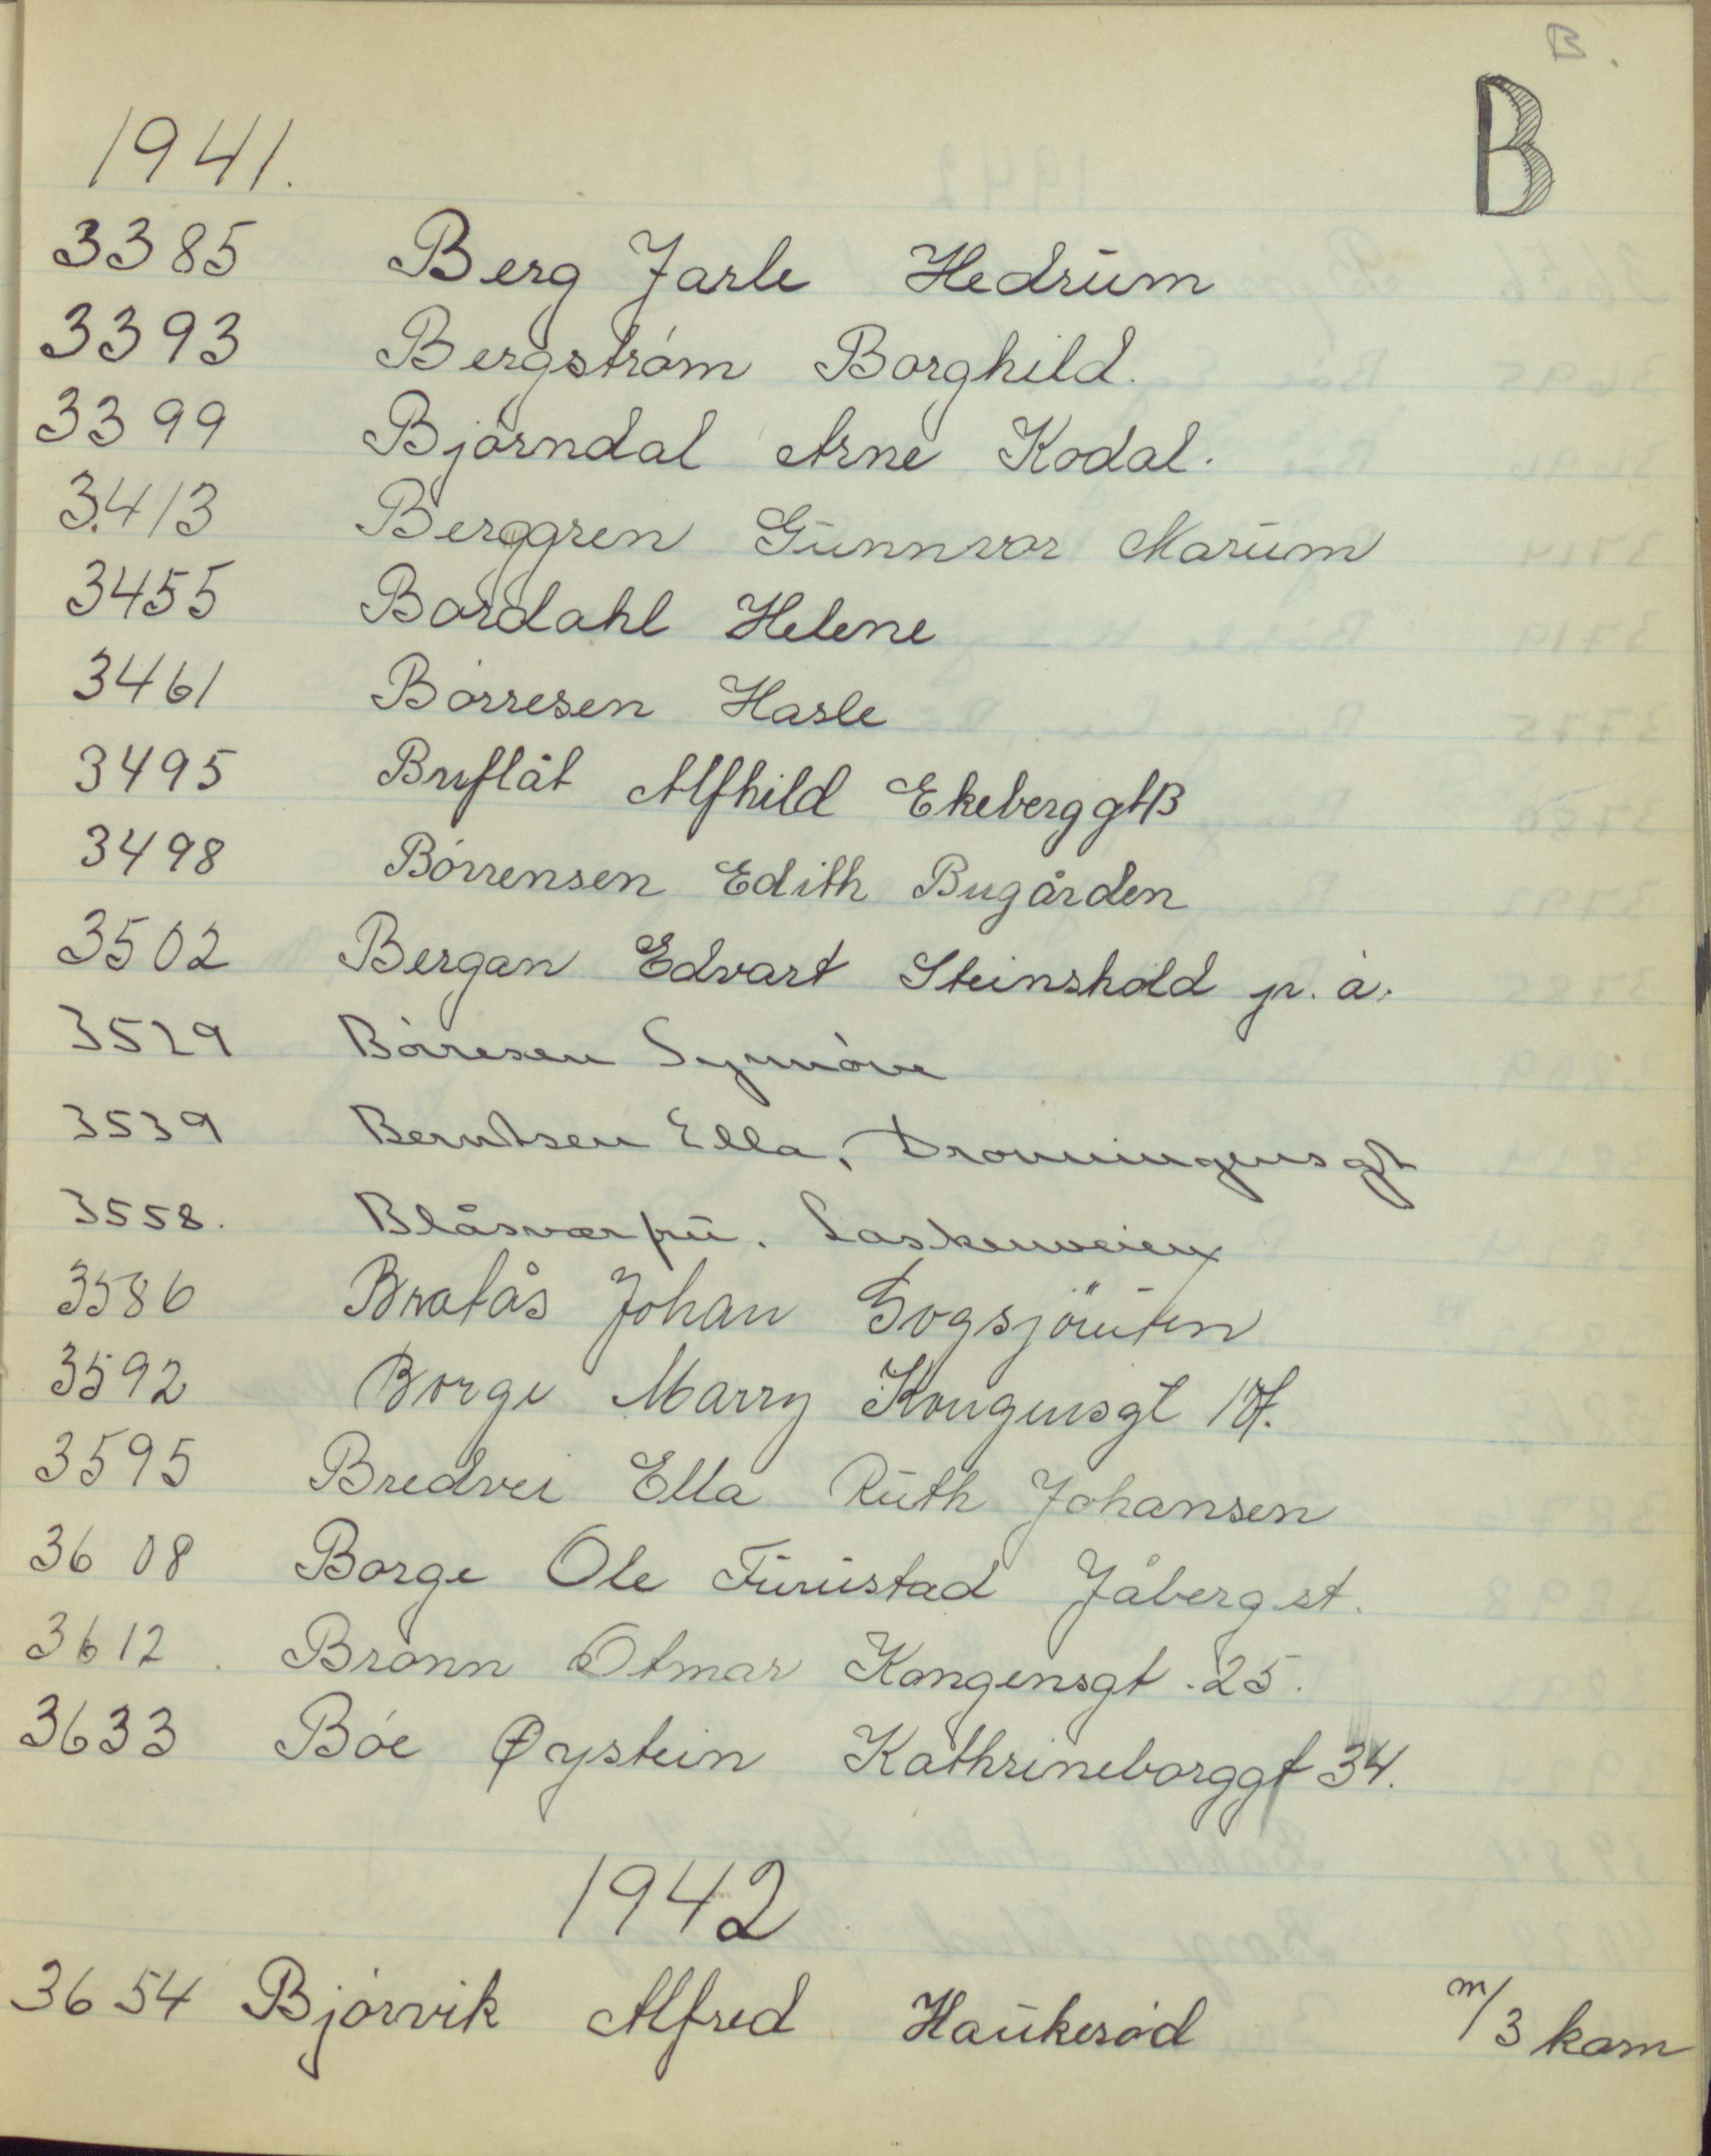 B.
B
1941.
3385 Berg Jarle Hedrum
3393 Bergstróm Borghild.
3399 Bjórndal Arne Kodal.
3413 Berggren Gunnvor Marum
3455 Bordahl Helene
3461 Bórresen Hasle
3495 Bruflåt Alfhild Ekeberggt
3498 Bórrensen Edith Bugården
3502 Bergan Edvart Steinshold pr. a.
3529 Bórresen Synnóve
3539 Berntsen Ella, Dronningensgt
3558. Blåsvær fru. Laskenveien
3586 Bratås Johan Gogsjöruten
3592 Borge Marry Kongensgt
3595 Bredvei Ella Ruth Johansen
3608 Borge Ole Furustad Jåberg st.
3612 Bronn Otmar Kongensgt. 25.
3633 Bóe Øystein Kathrineborggt 34.
1942
3654 Bjórvik Alfred Haukeród m/3 kam